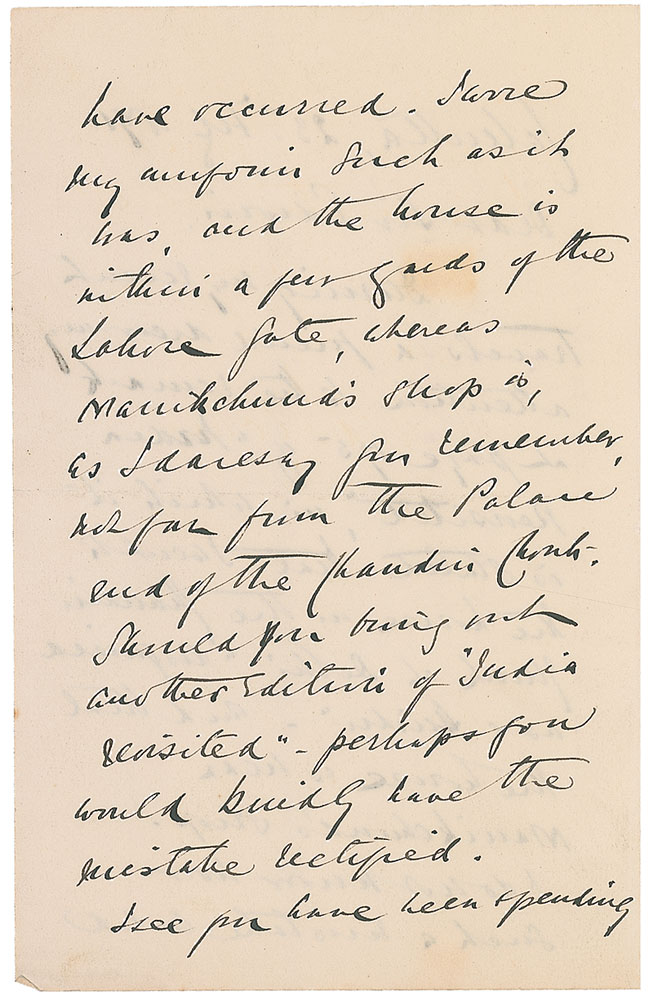 have occurred. I wore
my uniform such as it
was, and the house is
within a few yards of the
Lahore Gate, whereas
Manikchund's shop is,
as I daresay you remember,
not far from the Palace
end of the Chandni Chouk.
Should you bring out
another Edition of "India
revisited" - perhaps you
would kindly have the
mistake rectified.
I see you have been spending